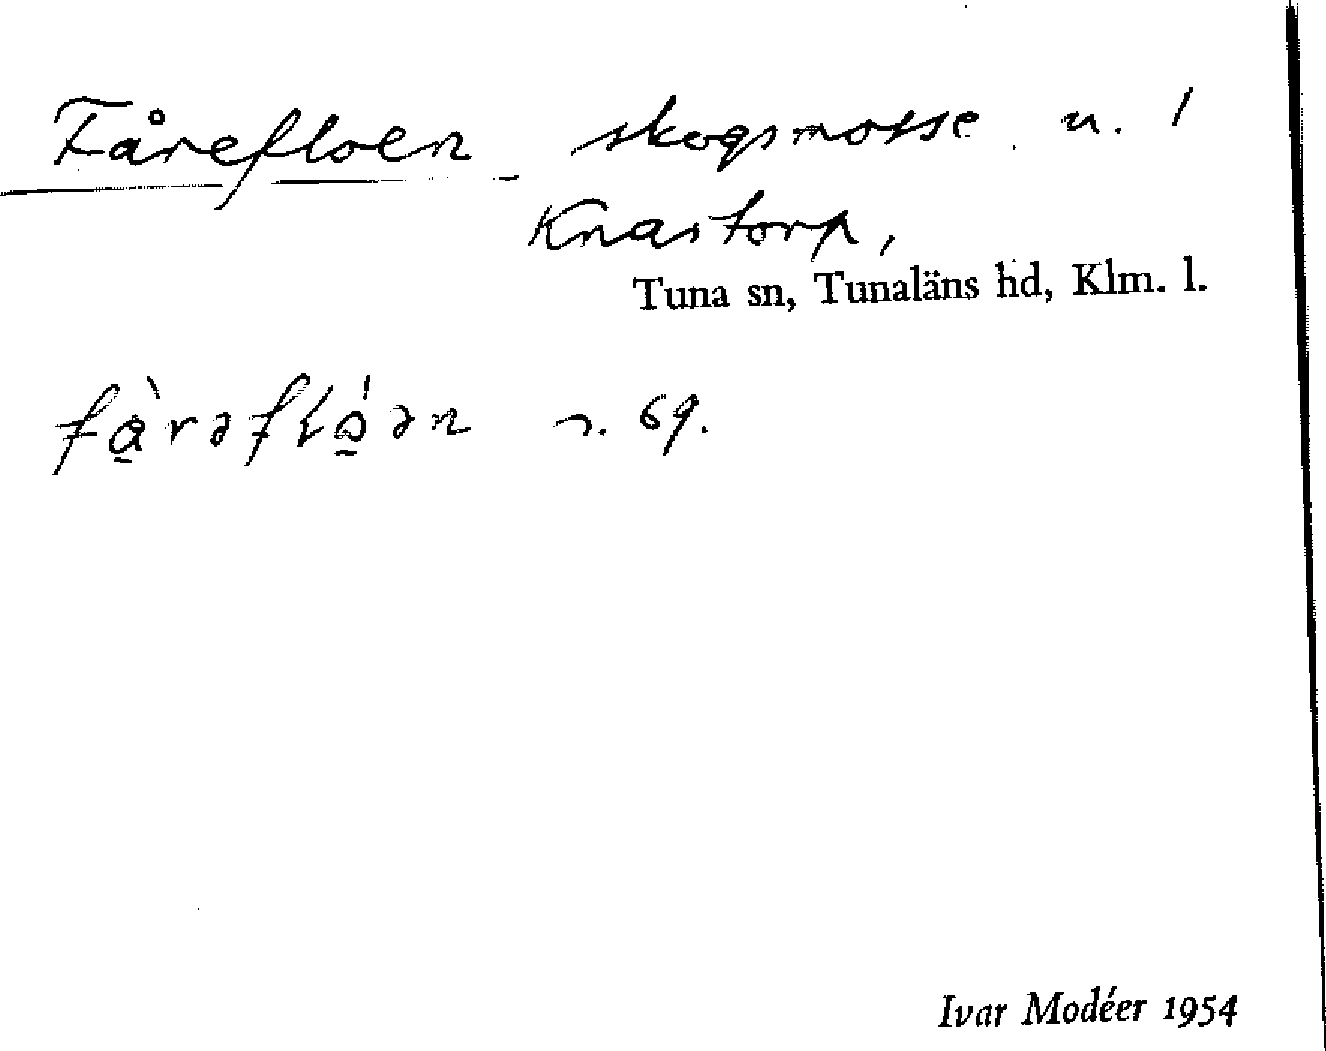 Fårefloen skogsmosse u. 1
Knastorp,
Tuna sn, Tunaläns hd, Klm. l.
fà̱rəfló̱ən s. 69.
Ivar Modéer 1954